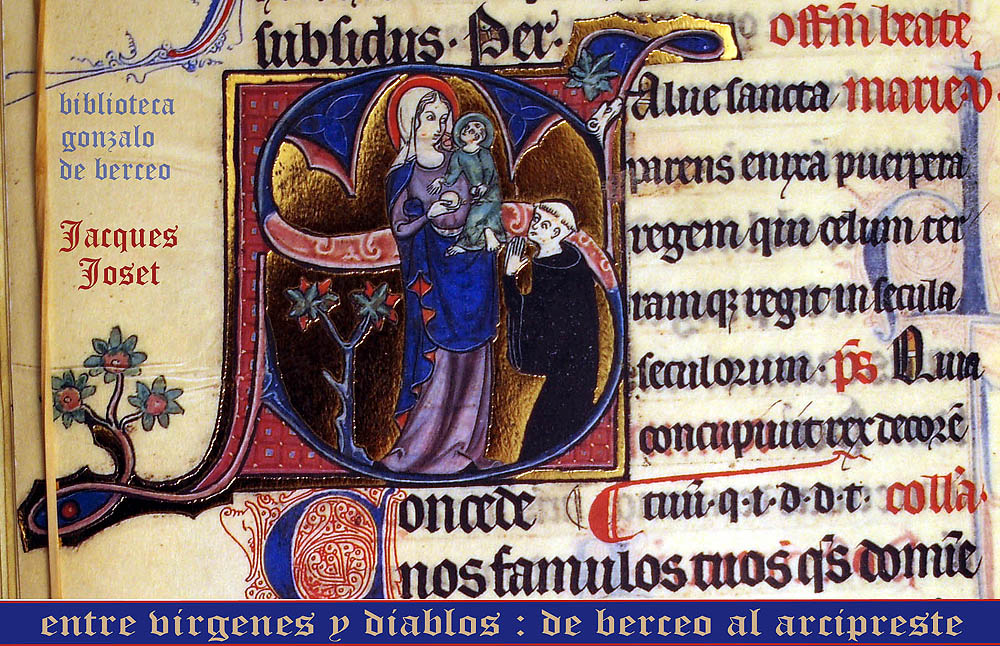 biblioteca
gonzalo
de berceo
Jacques
Joset
subsidus. Per. offm̄ beate
Salue sancta marie
parens enixa puerpera
regem qui celum ter
ramqꝫ regit in secula
seculorum. ps̄
concupiuit rex decorē
tuū. q. i. d. d. t. coll'a.
Concede
nos famulos tuos qs̄ domīe
entre virgenes y diablos : de berceo al arcipreste